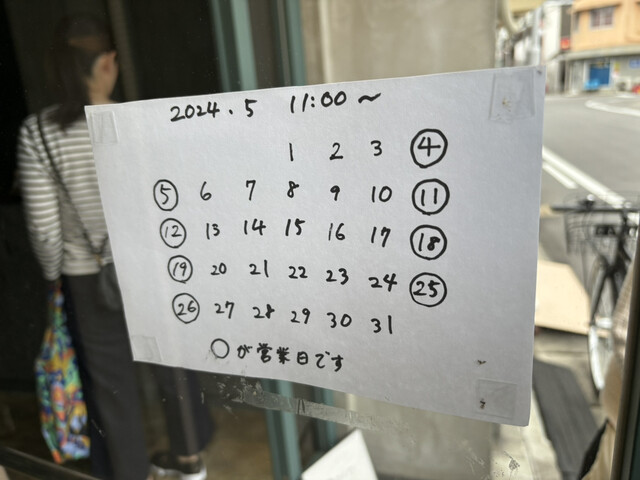 2024.5 11:00～
1 2 3 ④
⑤ 6 7 8 9 10 ⑪
⑫ 13 14 15 16 17 ⑱
⑲ 20 21 22 23 24 ㉕
㉖ 27 28 29 30 31
○が営業日です